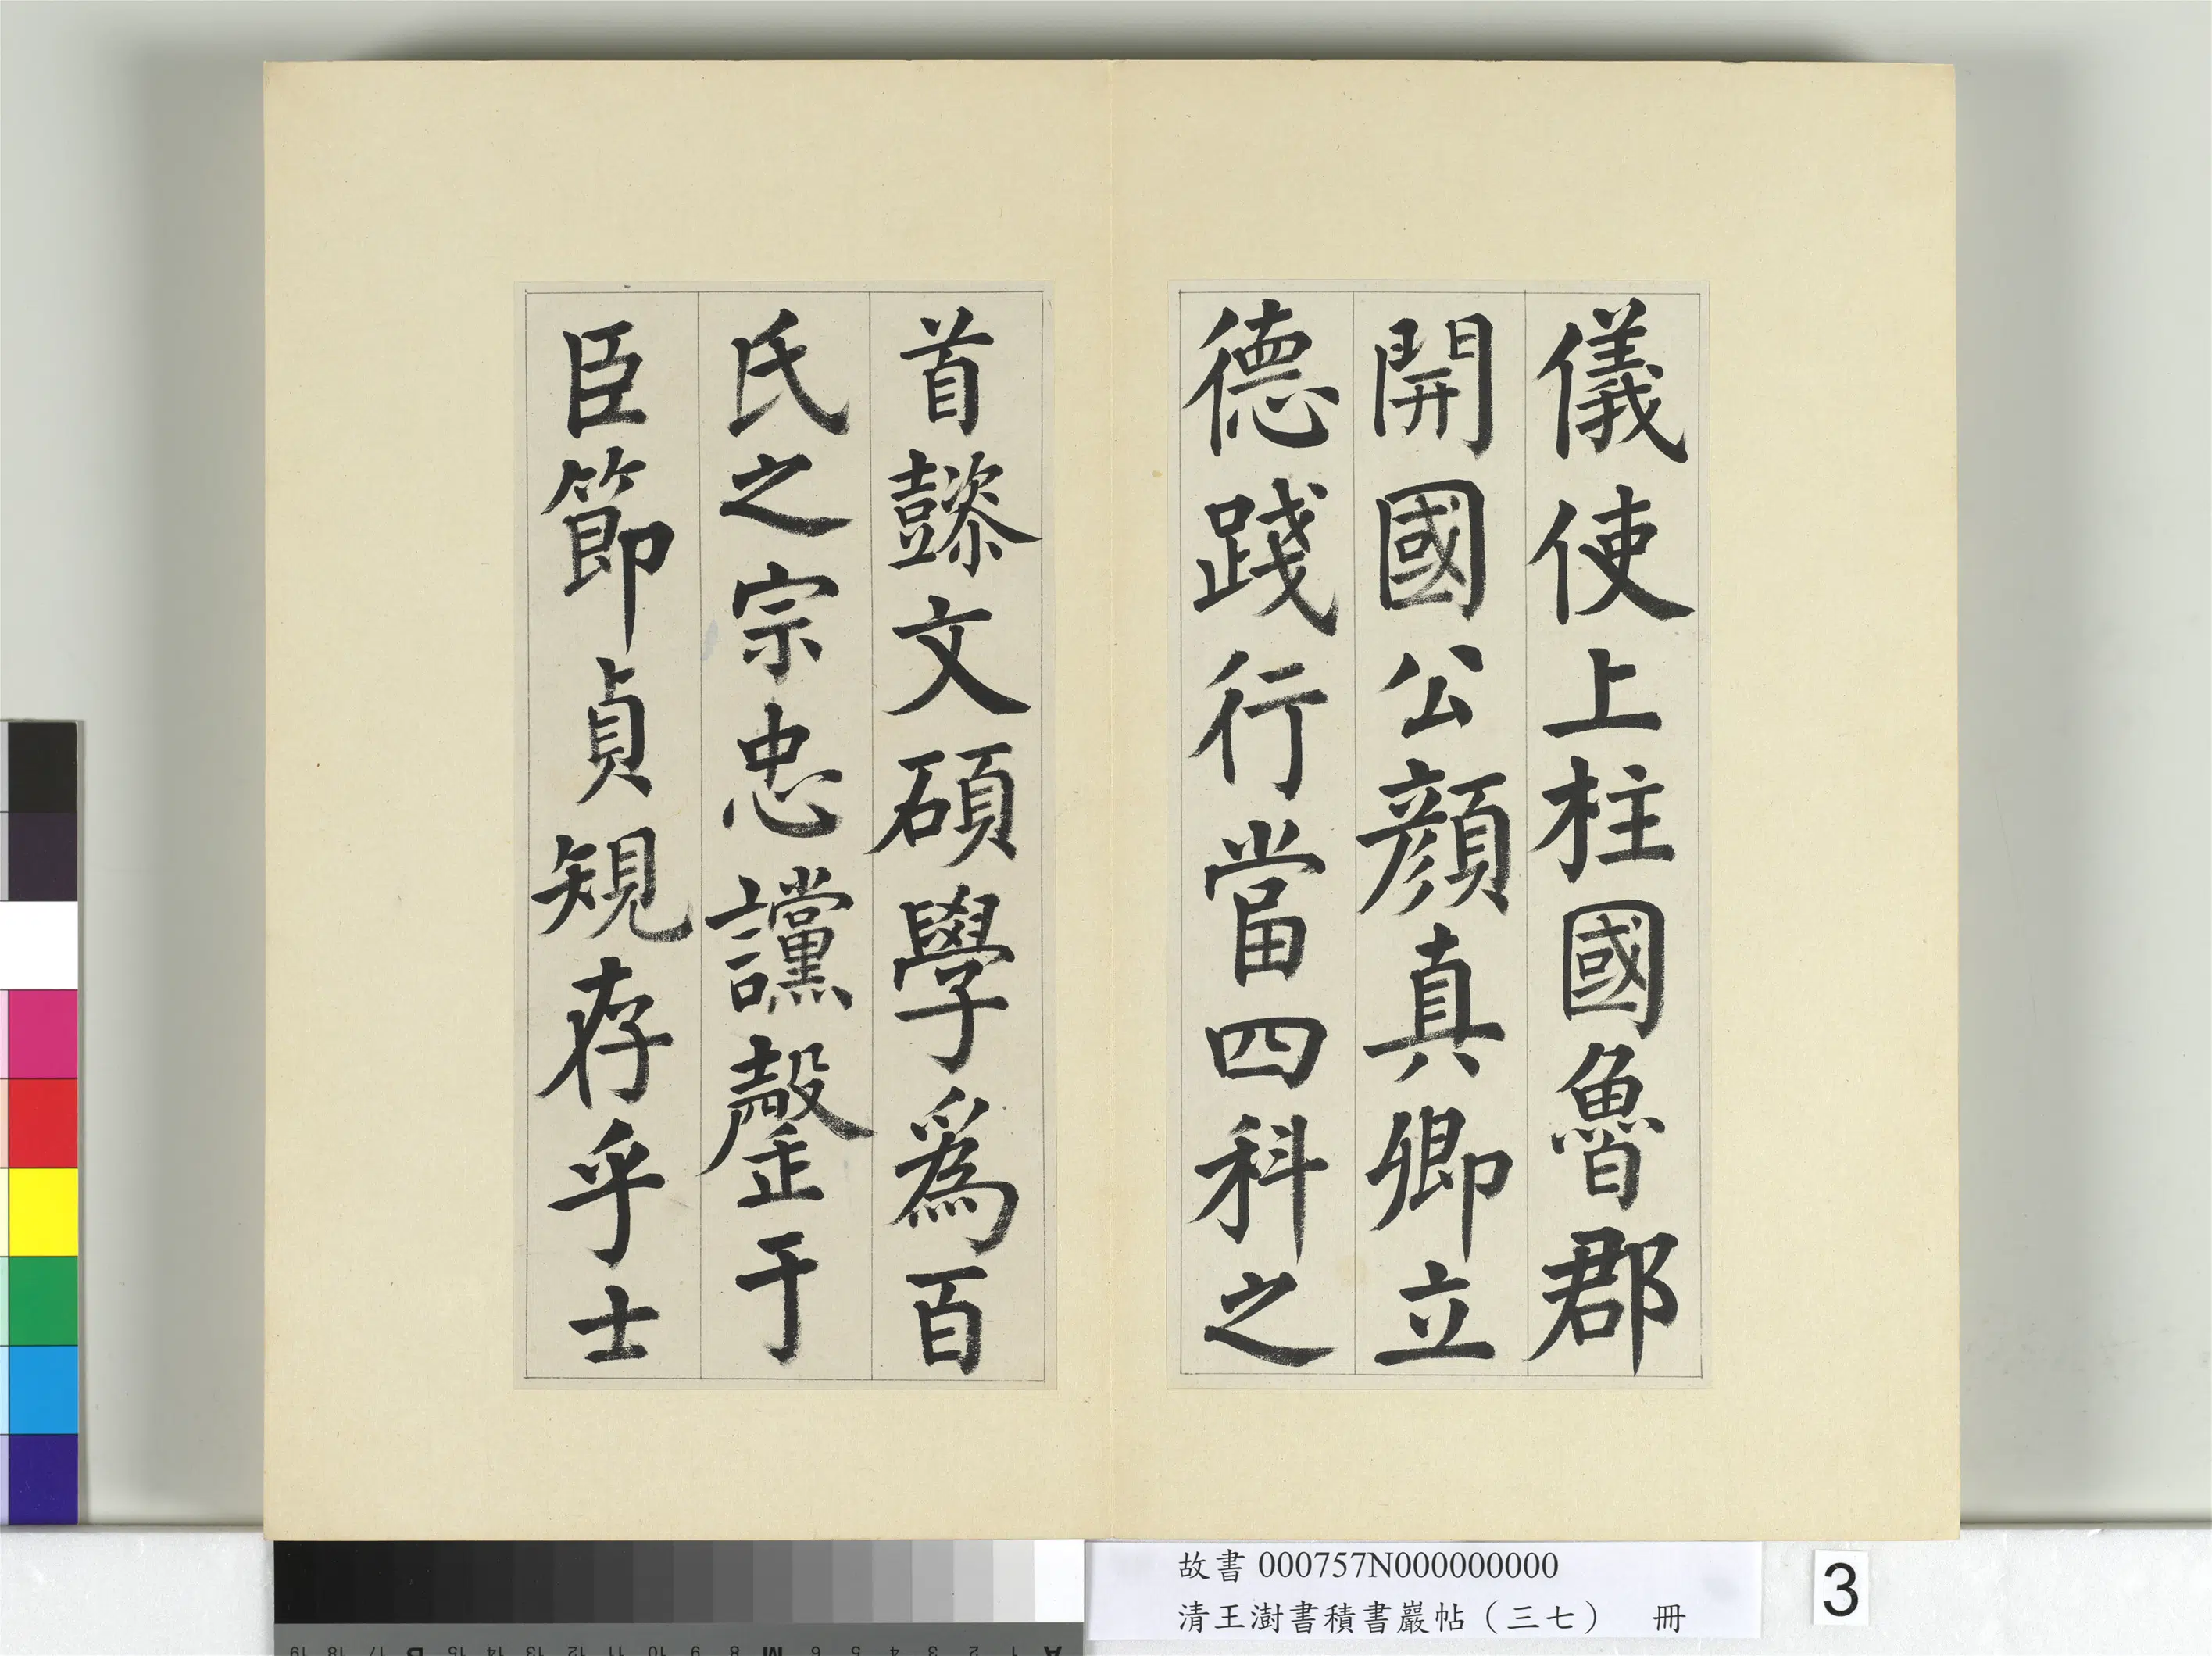 儀使上柱國魯郡
開國公顏真卿立
德踐行當四科之
首懿文碩學為百
氏之宗忠讜罄于
臣節貞規存乎士
故書 000757N000000000
清王澍書積書巖帖（三七） 冊
3